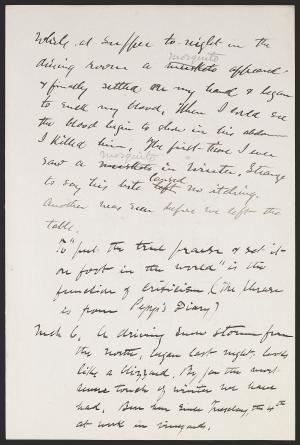 While at supper to-night in the
mosquito
dining room a musketo appeared
& finally settled on my hand & began
to suck my blood, When I could see
the blood begin to show in his abdomen
I killed him, The first time I ever
mosquito
saw a musketo in winter, Strange
caused
to say his bite left no itching.
Another was seen before we left the
table.
To "put the true praise of it
on foot in the world" is the
function of criticism. (The phrase
is from Pepy's Diary)
Mch 6, A driving snow storm from
the north, began last night, looks
like a blizzard. By far the most
severe touch of winter we have
had. Been here since Tuesday, the 4th
at work in vineyards.